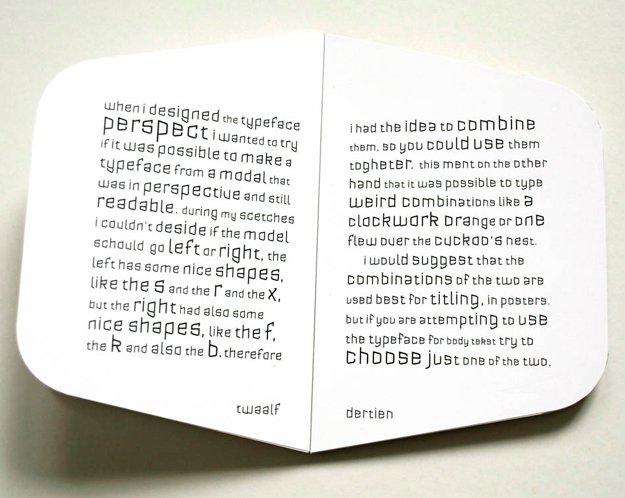 when i designed the typeface
perspect i wanted to try
if it was possible to make a
typeface from a modal that
was in perspective and still
readable. during my scetches
i couldn't deside if the model
schould go left or right, the
left has some nice shapes,
like the s and the r and the x,
but the right had also some
nice shapes, like the f,
the k and also the b. therefore
twaalf
i had the idea to combine
them. so you could use them
togheter. this ment on the other
hand that it was possible to type
weird combinations like a
clockwork orange or one
flew over the cuckoo's nest.
i would suggest that the
combinations of the two are
used best for titling, in posters.
but if you are attempting to use
the typeface for body tekst try to
choose just one of the two.
dertien